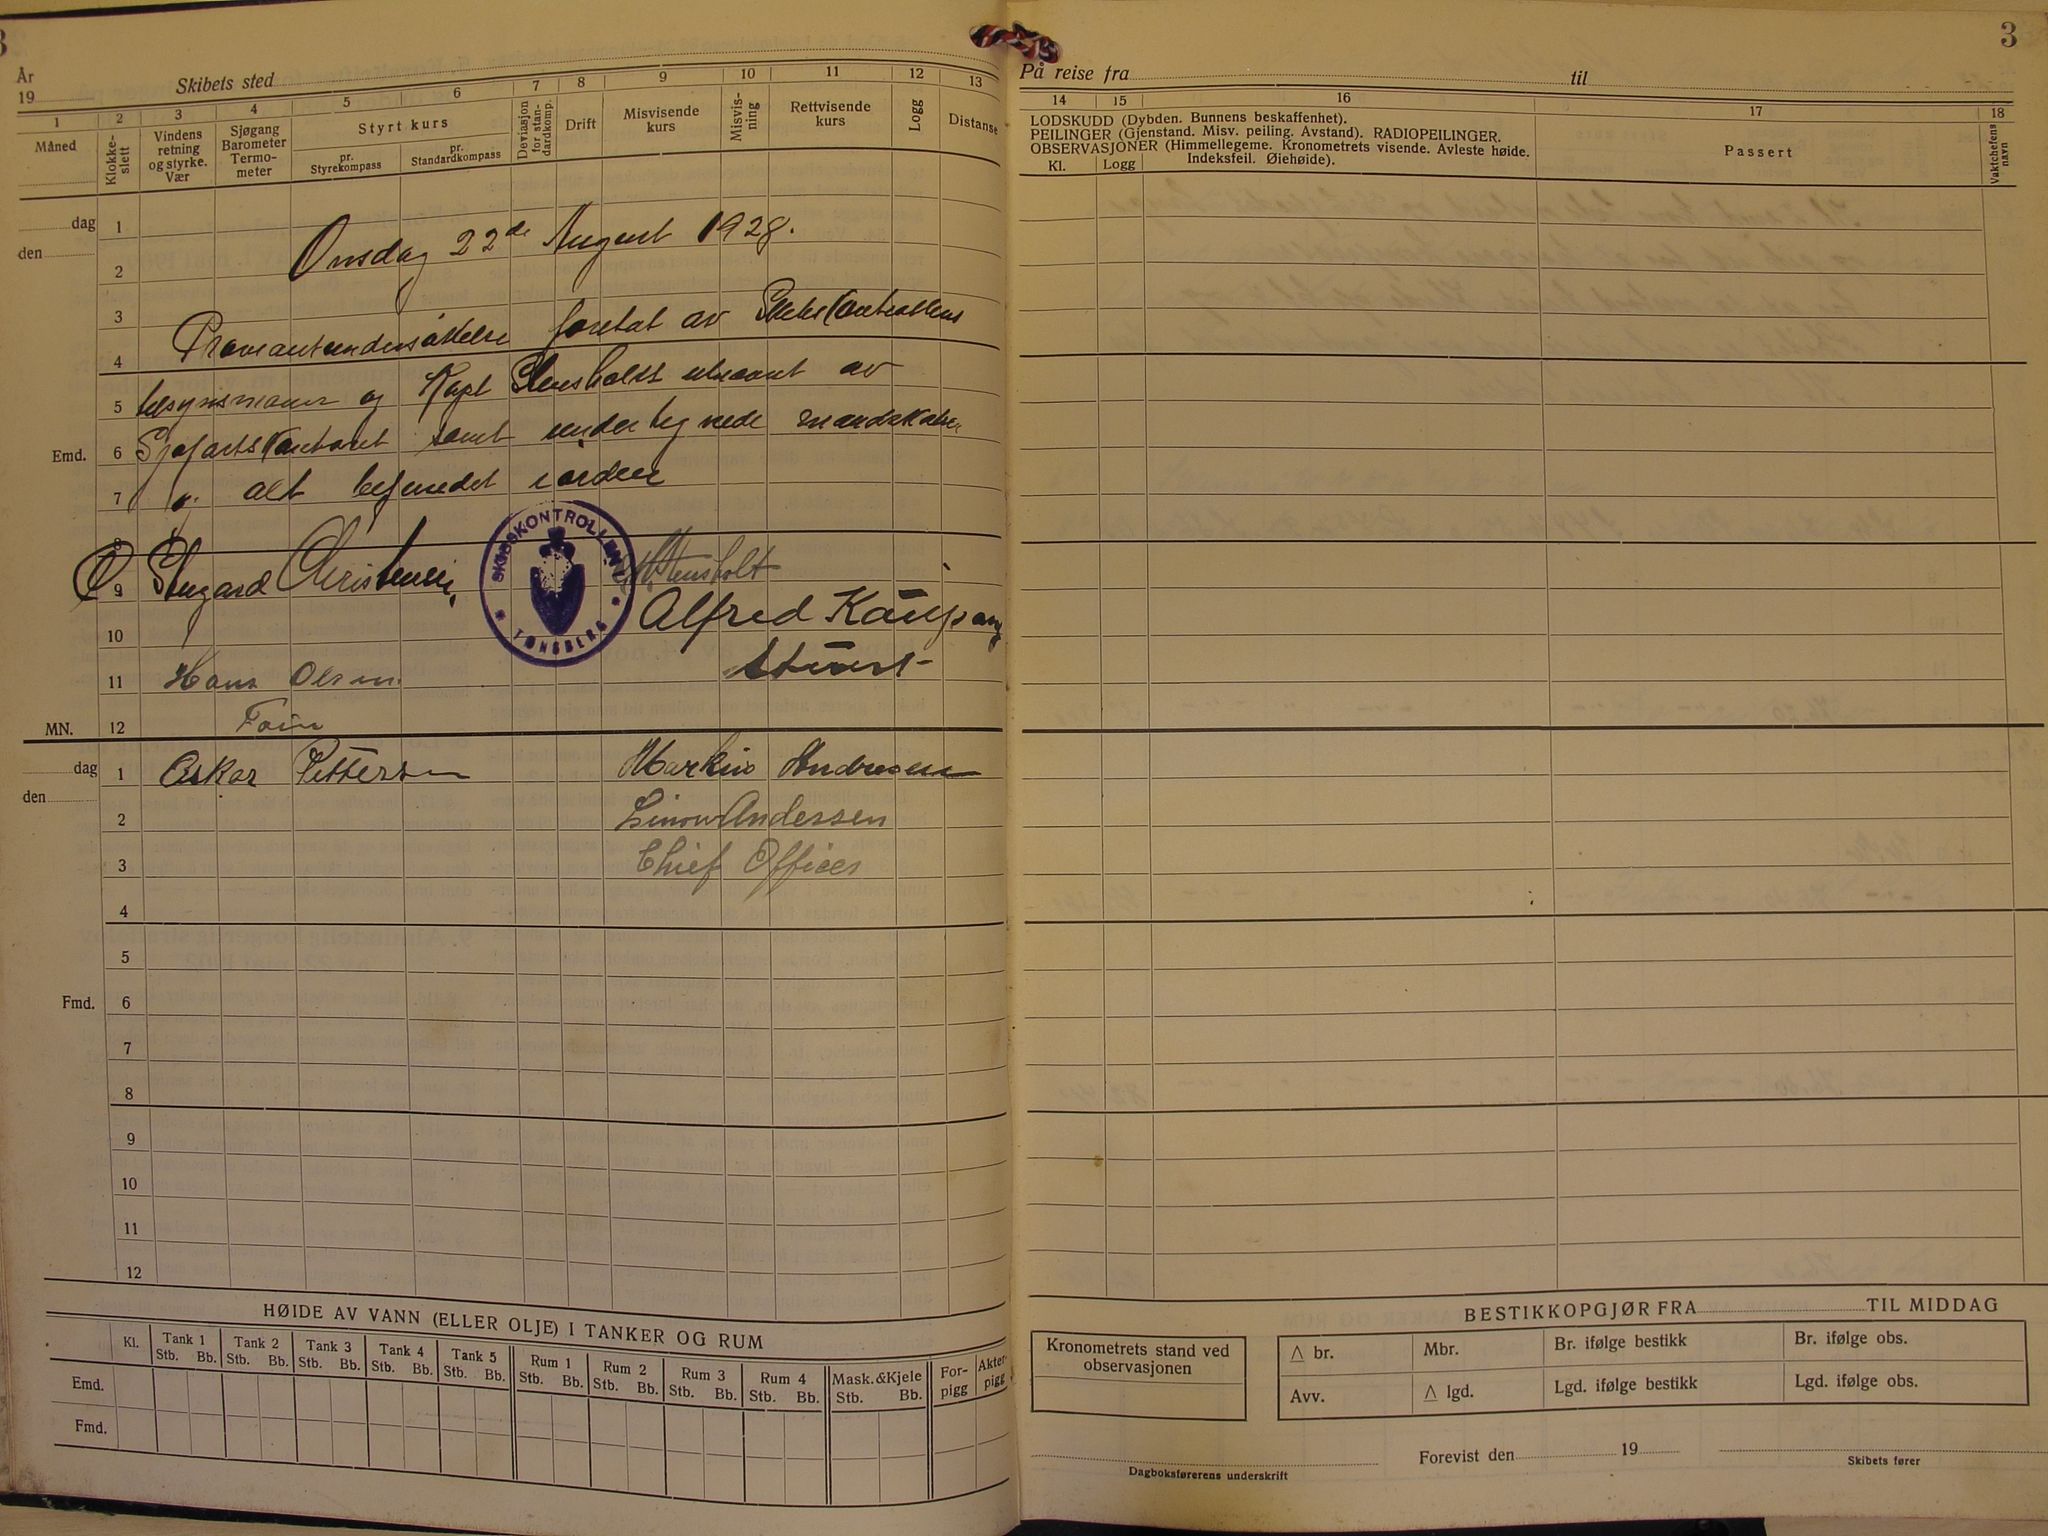 3
År
19
Skibets sted
1 2 3 4 5 6 7 8 9 10 11 12 13
Måned
Klokke-
slett
Vindens
retning
og styrke.
Vær
Sjøgang
Barometer
Termo-
meter
Styrt kurs
pr.
Styrekompass
pr.
Standardkompass
Deviasjon
for stan-
dardkomp.
Drift
Misvisende
kurs
Misvis-
ning
Rettvisende
kurs
Logg
Distanse
dag
den
1
Onsdag 22de August 1928.
2
3
Proviantundersøkelse foretat av Skibskontrollens
4
tilsynsmann og Kapt Stensholt utnævnt av
5
Sjøfartskontoret samt undertegnede mandskaber
Emd.
6
og alt befunnet iorden
7
8
SKIBSKONTROLLEN
TØNSBERG
9
Christensen
Stensholt
Alfred Kaupang
10
Stuert
11
Hans Olsen
Foin
MN.
12
dag
den
1
Oskar Pettersen
Markus Andresen
2
Andersen
3
Chief Officer
4
5
Fmd.
6
7
8
9
10
11
12
HØIDE AV VANN (ELLER OLJE) I TANKER OG RUM
Kl.
Tank 1 Tank 2 Tank 3 Tank 4 Tank 5 Rum 1 Rum 2 Rum 3 Rum 4 Mask.&Kjele For-pigg Akter-pigg
Stb. Bb. Stb. Bb. Stb. Bb. Stb. Bb. Stb. Bb. Stb. Bb. Stb. Bb. Stb. Bb. Stb. Bb. Stb. Bb.
Emd.
Fmd.
3
På reise fra til
14 15 16 17 18
LODSKUDD (Dybden. Bunnens beskaffenhet).
PEILINGER (Gjenstand. Misv. peiling. Avstand). RADIOPEILINGER.
OBSERVASJONER (Himmellegeme. Kronometrets visende. Avleste høide.
Kl. Logg Indeksfeil. Øiehøide).
Passert
Vaktchefens
navn
BESTIKKOPGJØR FRA TIL MIDDAG
Kronometrets stand ved
observasjonen
△ br. Mbr. Br. ifølge bestikk Br. ifølge obs.
Avv. △ lgd. Lgd. ifølge bestikk Lgd. ifølge obs.
Forevist den 19
Dagboksførerens underskrift
Skibets fører